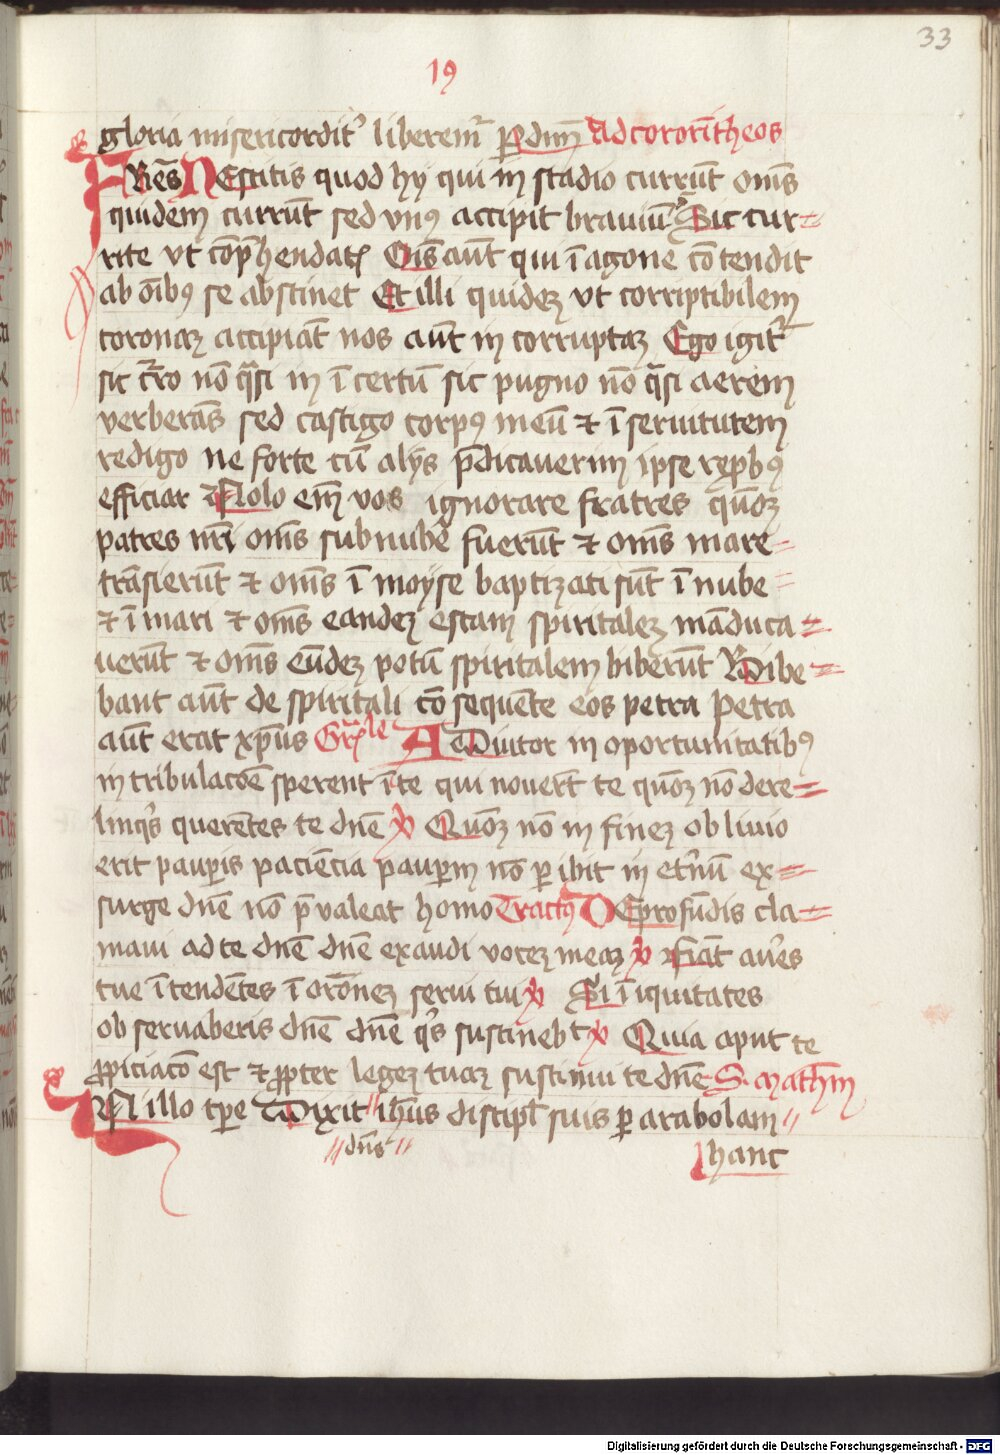 33
19
gloria misericordit᷒ liberem᷑ ꝑ dnm̄ Ad cororītheos
FRēs NEscitis quod hÿ qui in stadio currūt om̄s
quidem currūt sed vnꝰ accipit brauiū Sic cur=
rite vt cōp̄hendatꝭ Oīs aūt qui ī agone cōtendit
ab oībꝰ se abstinet Et illi quideꝫ vt corriptibilem
coronaꝫ accipiāt nos aūt in corruptaꝫ Ego igit᷑
sic c᷑ro nō q̄si in ī certū sic pugno nō q̄si aerem
verberās sed castigo corpꝰ meū ⁊ ī seruitutem
redigo ne forte cū alÿs p̄dicauerim ipse reꝓbꝰ
efficiar Nolo em̄ vos ignorare fratres qm̄oꝫ
patres nr̄i om̄s sub nube fuerūt ⁊ om̄s mare=
trāsierūt ⁊ om̄s ī moÿse baptizati sūt ī nube=
⁊ ī mari ⁊ om̄s eandeꝫ escam spiritaleꝫ māduca=
uerūt ⁊ om̄s eūdeꝫ potū spiritalem biberūt Bibe=
bant aūt de spiritali cō sequēte eos petra Petra
aūt erat xp̄us Grāle ADiutor in oportunitatibꝰ
in tribulacōe sperent īte qui nouer̄t te qm̄oꝫ nō dere=
linqͥs querētes te dnē v Qm̄oꝫ nō in fineꝫ obliuio
erit pauꝑis paciēcia pauꝑm nō ꝑ ibit in et᷑nū ex=
surge dnē nō p̄ualeat homo Tractꝰ DE profūdis cla=
maui ad te dnē dnē exaudi voceꝫ meaꝫ v Fiāt aur᷑es
tue ītendētes ī orōneꝫ serui tui v Si īiquitates
obseruaberis dnē dnē qͥs sustinebt v Quia aput te
ꝓpiciacō est ⁊ ꝓpter legeꝫ tuaꝫ sustinui te dnē S. mathm̄
IN illo tꝑe Dixit " ih̄us discipl̄ suis ꝑ arabolam "
" dn̄s "
hanc
Digitalisierung gefördert durch die Deutsche Forschungsgemeinschaft - DFG